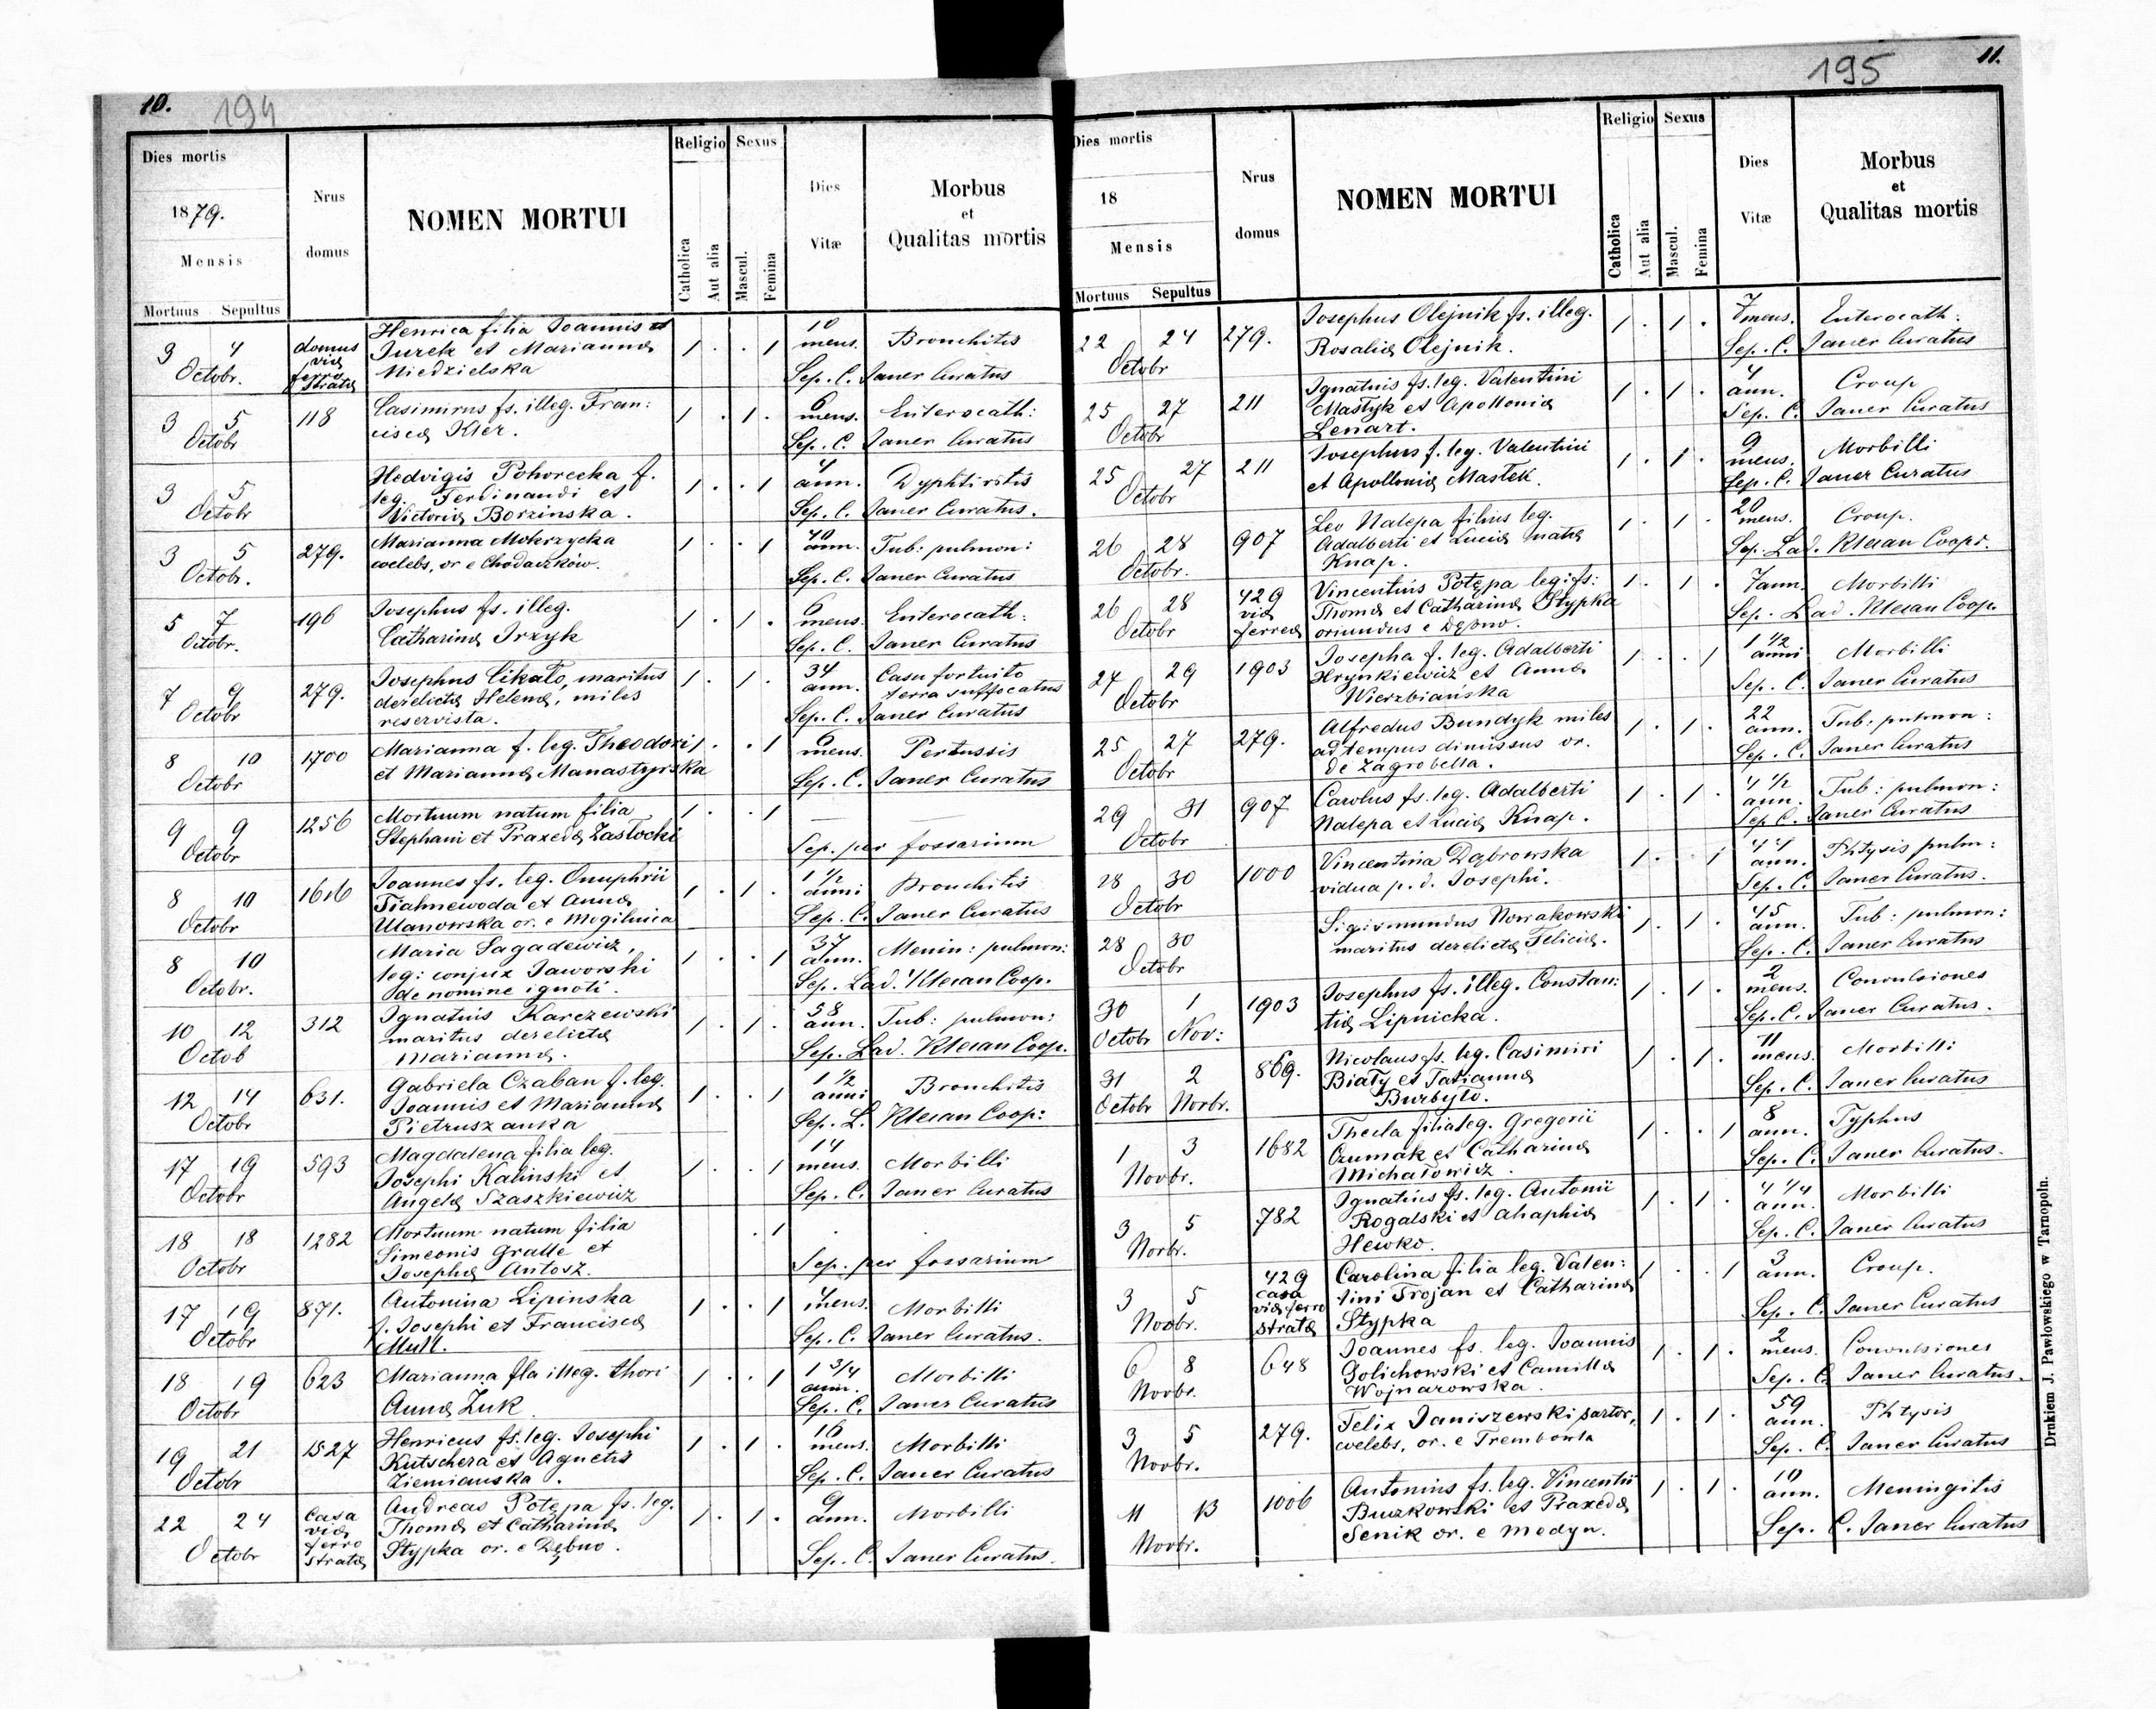 10. 194
Dies mortis
1879.
Mensis
Mortuus Sepultus
Nrus domus
NOMEN MORTUI
Religio
Catholica
Aut alia
Sexus
Mascul.
Femina
Dies Vitæ
Morbus
et
Qualitas mortis
3 4 Octobr. domus viæ ferro stratæ 1 . . 1 10 mens. Bronchitis
Henrica filia Joannis et
Jurek et Mariannæ
Niedzielska
Sep. C. Janer Curatus
3 5 Octobr 118 1 . 1 . 6 mens. Enterocath:
Casimirus fs. illeg. Fran:
ciscæ Kier.
Sep. C. Janer Curatus
3 5 Octobr 1 . . 1 4 ann. Dyphtiritis
Hedvigis Pohorecka f.
leg. Ferdinandi et
Victoriæ Borzinska.
Sep. C. Janer Curatus.
3 5 Octobr. 279. 1 . . 1 40 ann. Tub: pulmon:
Marianna Mokrzycka
cœlebs, or e Chodaczków.
Sep. C. Janer Curatus
5 7 Octobr. 196 1 . 1 . 6 mens. Enterocath:
Josephus fs. illeg.
Catharinæ Irzyk
Sep. C. Janer Curatus
7 9 Octobr 279. 1 . 1 . 34 ann. Casu fortuito
terra suffocatus
Josephus Cikało, maritus
derelictæ Helenæ, miles
reservista.
Sep. C. Janer Curatus
8 10 Octobr 1700 1 . . 1 6 mens. Pertussis
Marianna f. leg. Theodori
et Mariannæ Manastyrska
Sep. C. Janer Curatus
9 9 Octobr 1256 1 . . 1
Mortuum natum filia
Stephani et Praxedæ Zasłocki
Sep. per fossarium
8 10 Octobr 1616 1 . 1 . 1 1/2 anni Bronchitis
Joannes fs. leg. Onuphrii
Tiahnewoda et Annæ
Ulanowska or. e Mogilnica
Sep. C. Janer Curatus
8 10 Octobr. 1 . . 1 37 ann. Menin: pulmon:
Maria Sagadewicz,
leg: conjux Jaworski
de nomine ignoti.
Sep. Lad. Kleran Coop.
10 12 Octob 312 1 . 1 . 58 ann. Tub: pulmon:
Ignatius Karczewski
maritus derelictæ
Mariannæ.
Sep. Lad. Kleran Coop.
12 14 Octobr 631. 1 . . 1 1 1/2 anni Bronchitis
Gabriela Czaban f. leg.
Joannis et Mariannæ
Pietruszanka
Sep. L. Kleran Coop:
17 19 Octobr 593 1 . . 1 14 mens. Morbilli
Magdalena filia leg.
Josephi Kalinski et
Angelæ Szaszkiewicz
Sep. C. Janer Curatus
18 18 Octobr 1282 . 1
Mortuum natum filia
Simeonis Gralle et
Josephæ Antosz.
Sep. per fossarium
17 19 Octobr 871. 1 . . 1 4 mens. Morbilli
Antonina Lipinska
f. Josephi et Franciscæ
Mull.
Sep. C. Janer Curatus.
18 19 Octobr 623 1 . . 1 1 3/4 ann. Morbilli
Marianna fla illeg. thori
Annæ Zuk
Sep. C. Janer Curatus
19 21 Octobr 1527 1 . 1 . 16 mens. Morbilli
Henricus fs. leg. Josephi
Kutschera et Agnetis
Ziemianska.
Sep. C. Janer Curatus
22 24 Octobr casa viæ ferro stratæ 1 . 1 . 9 ann. Morbilli
Andreas Potępa fs. leg.
Thomæ et Catharinæ
Stypka or. e Dębno.
Sep. C. Janer Curatus.
195 11.
Dies mortis
18
Mensis
Mortuus Sepultus
Nrus domus
NOMEN MORTUI
Religio
Catholica
Aut alia
Sexus
Mascul.
Femina
Dies Vitæ
Morbus
et
Qualitas mortis
22 24 Octobr 279. 1 . 1 . 7 mens. Enterocath:
Josephus Olejnik fs. illeg.
Rosaliæ Olejnik.
Sep. C. Janer Curatus
25 27 Octobr 211 1 . 1 . 4 ann. Croup
Ignatius fs. leg. Valentini
Mastyk et Apolloniæ
Lenart.
Sep. C. Janer Curatus
25 27 Octobr 211 1 . 1 . 9 mens. Morbilli
Josephus f. leg. Valentini
et Apolloniæ Mastek.
Sep. C. Janer Curatus
26 28 Octobr. 907 1 . 1 . 20 mens. Croup.
Leo Nalepa filius leg.
Adalberti et Luciæ natæ
Knap.
Sep. Lad. Kleran Coopr.
26 28 Octobr 429 viæ ferreæ 1 . 1 . 7 ann. Morbilli
Vincentius Potępa leg: fs:
Thomæ et Catharinæ Stypka
oriundus e Dębno.
Sep. Lad. Kleran Coop.
27 29 Octobr 1903 1 . . 1 1 1/2 anni Morbilli
Josepha f. leg. Adalberti
Hrynkiewicz et Annæ
Wierzbiańska
Sep. C. Janer Curatus
25 27 Octobr 279. 1 . 1 . 22 ann. Tub: pulmon:
Alfredus Bundyk miles
ad tempus dimissus or.
de Zagrobella.
Sep. C. Janer Curatus
29 31 Octobr 907 1 . 1 . 4 1/2 ann. Tub: pulmon:
Carolus fs. leg. Adalberti
Nalepa et Luciæ Knap.
Sep. C. Janer Curatus
28 30 Octobr 1000 1 . . 1 44 ann. Phtysis pulm:
Vincentina Dąbrowska
vidua p. d. Josephi.
Sep. C. Janer Curatus.
28 30 Octobr 1 . 1 . 45 ann. Tub: pulmon:
Sigismundus Nowakowski
maritus derelictæ Feliciæ.
Sep. C. Janer Curatus
30 Octobr 1 Nov: 1903 1 . 1 . 2 mens. Convulsiones
Josephus fs. illeg. Constan:
tiæ Lipnicka.
Sep. C. Janer Curatus.
31 Octobr 2 Norbr. 869. 1 . 1 . 11 mens. Morbilli
Nicolaus fs. leg. Casimiri
Biały et Tatiannæ
Burbyło.
Sep. C. Janer Curatus
1 3 Novbr. 1682 1 . . 1 8 ann. Typhus
Thecla filia leg. Gregorii
Czumak et Catharinæ
Michałowicz.
Sep. C. Janer Curatus.
3 5 Norbr. 782 1 . 1 . 4 1/4 ann. Morbilli
Ignatius fs. leg. Antonii
Rogalski et Ahaphiæ
Hewko.
Sep. C. Janer Curatus
3 5 Novbr. 429 casa viæ ferro stratæ 1 . . 1 3 ann. Croup.
Carolina filia leg. Valen:
tini Trojan et Catharinæ
Stypka
Sep. C. Janer Curatus
6 8 Novbr. 648 1 . 1 . 2 mens. Convulsiones
Joannes fs. leg. Joannis
Golichowski et Camillæ
Wojnarowska.
Sep. C. Janer Curatus.
3 5 Novbr. 279. 1 . 1 . 59 ann. Phtysis
Felix Janiszewski sartor,
cœlebs, or. e Trembowla
Sep. C. Janer Curatus
11 13 Novbr. 1006 1 . 1 . 10 ann. Meningitis
Antonius fs. leg. Vincentii
Buczkowski et Praxedæ
Senik or. e Modyn.
Sep. C. Janer Curatus
Drukiem J. Pawłowskiego w Tarnopolu.